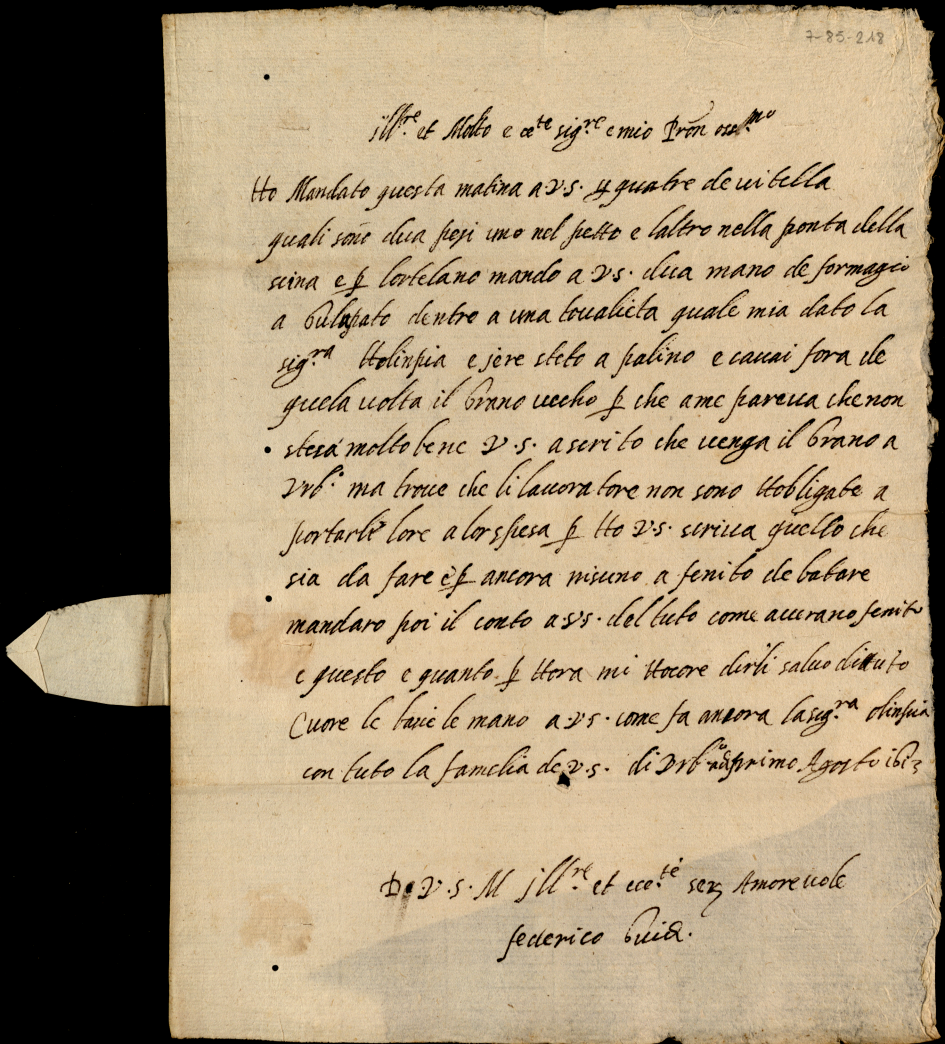 7-85-218
Ill.re et Molto e cc.te sig.re e mio Pron oss.mo
Ho Mandato questa matina a V.S. quatre de vitella
quali sono dua pesi uno nel petto e laltro nella ponta della
scina e p lortelano mando a V.S. dua mano de formagio
a Guluppato dentro a una tovalieta quale mia dato la
sig.ra Holinpia e jere steto a palino e cavai fora de
quela volta il Grano vecho p che ame pareva che non
stesa molto bene V.S. a scrito che venga il Grano a
Vrb.o ma trove che li lavoratore non sono Hobligate a
portarli lore a lor spesa p Ho V.S. scriva quello che
sia da fare e p ancora nisuno a fenito de batare
mandaro poi il conto a V.S. del tuto come averano fenito
e questo e quanto p Hora mi Hocore dirli salvo di tuto
Cuore le bacie le mano a V.S. come fa ancora la sig.ra olinpia
con tuto la famelia de V.S. di Vrb.o adi primo Agosto
De V.S. M Ill.re et ecc.te ser Amorevole
federico Guid.